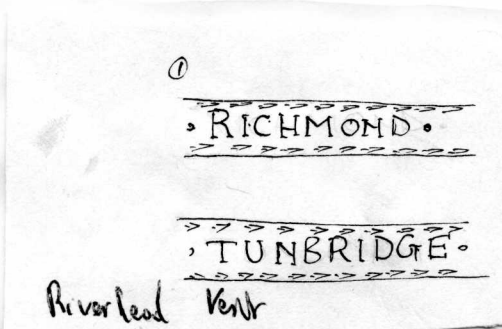 ①
• RICHMOND •
• TUNBRIDGE •
Riverhead Kent